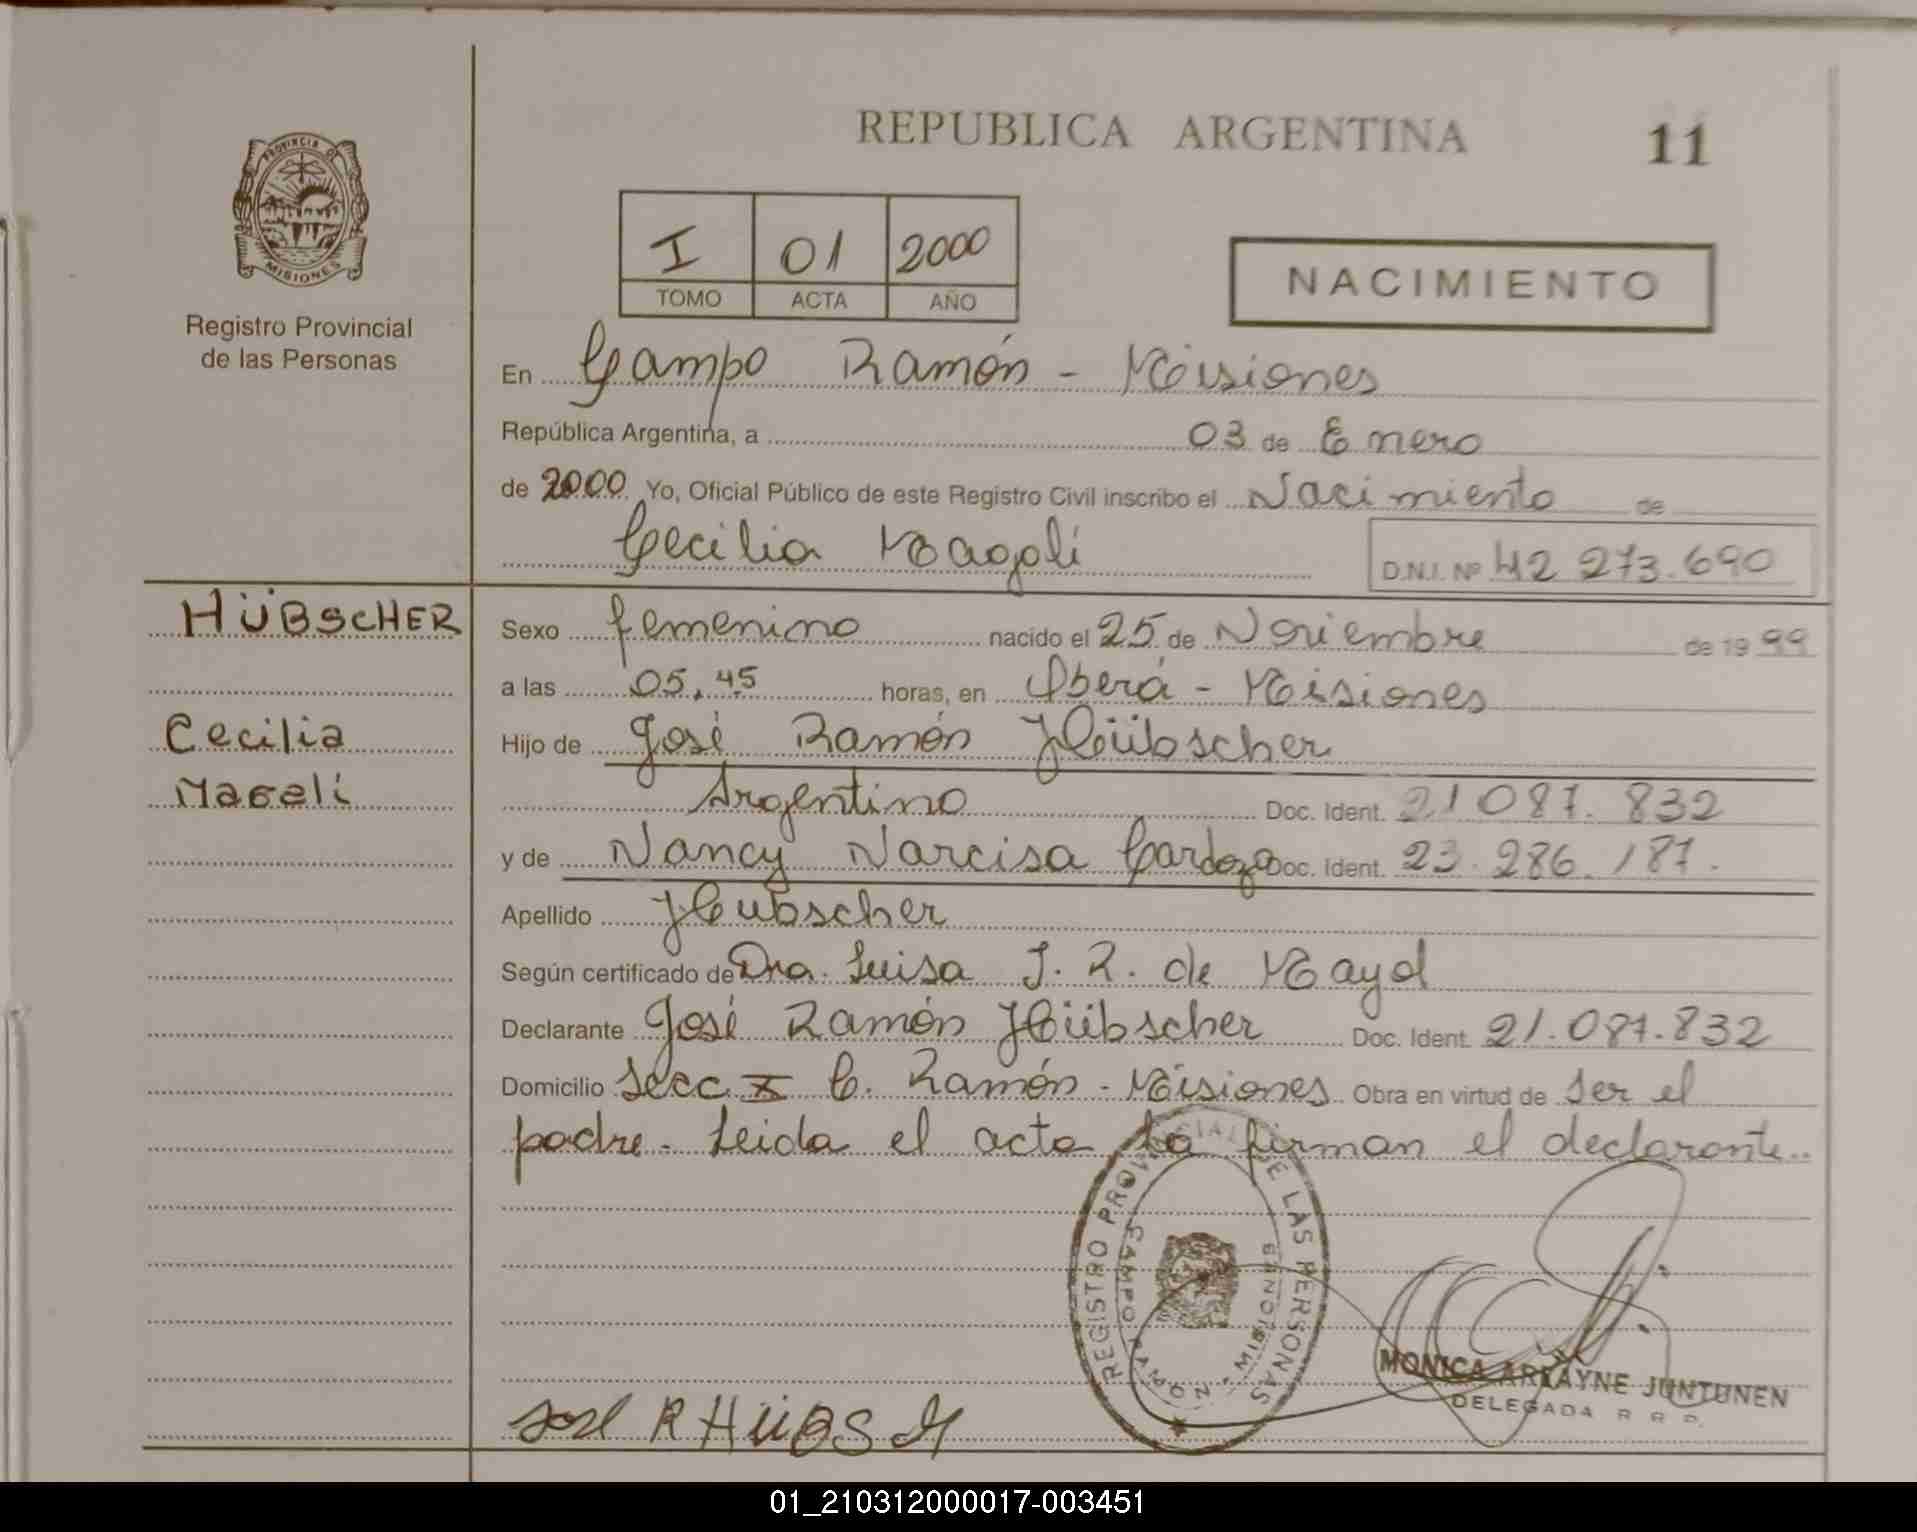 REPUBLICA ARGENTINA
11
PROVINCIA DE
MISIONES
Registro Provincial
de las Personas
I 01 2000
TOMO ACTA AÑO
NACIMIENTO
En Campo Ramón - Misiones
República Argentina, a 03 de Enero
de 2000 Yo, Oficial Público de este Registro Civil inscribo el Nacimiento de
Cecilia Magalí D.N.I. Nº 42 273.690
HÜBSCHER
Cecilia
Magalí
Sexo femenino nacido el 25 de Noviembre de 1999
a las 05.45 horas, en Oberá - Misiones
Hijo de José Ramón Hübscher
Argentino Doc. Ident. 21 087.832
y de Nancy Narcisa Cardozo Doc. Ident. 23.286.187.
Apellido Hubscher
Según certificado de Dra. Luisa J. R. de Mayol
Declarante José Ramón Hübscher Doc. Ident. 21.087.832
Domicilio Secc. I C. Ramón - Misiones Obra en virtud de ser el
padre - Leida el acta la firman el declarante..
REGISTRO PROVINCIAL DE LAS PERSONAS
CAMPO RAMON - MISIONES
MONICA ARRAYNE JUNTUNEN
DELEGADA R R P.
José R HÜBS
01_210312000017-003451